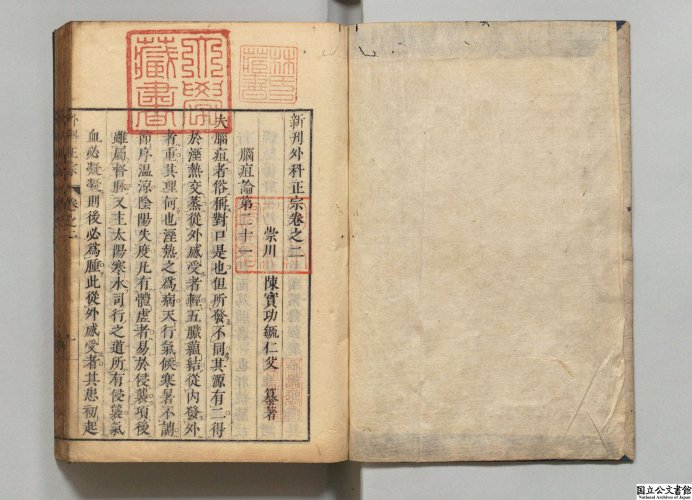 新刊外科正宗卷之二
崇川 陳實功毓仁父 纂著
腦疽論第二十一
夫腦疽者俗稱對口是也但所發不同其源有二得
於溼熱交蒸從外感受者輕五臟蘊結從內發外
者重其理何也溼熱之為病天行氣候寒暑不調
節序溫涼陰陽失度凡有體虛者易於侵襲項後
雖屬督脈又主太陽寒水司行之道所有侵襲氣
血必凝凝則後必為腫此從外感受者其患初起
外科正宗 卷之二
藏書
国立公文書館
National Archives of Japan